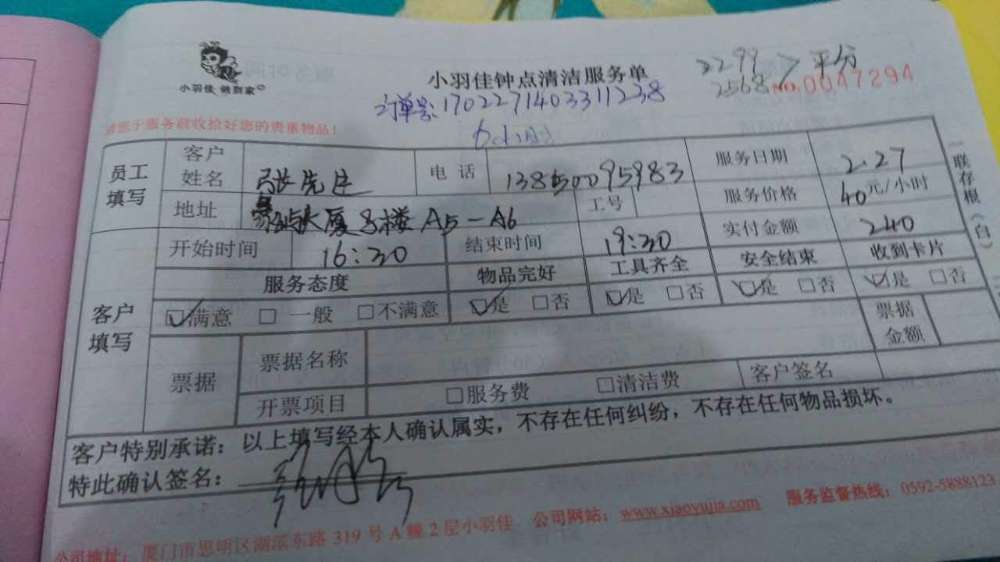 小羽佳 做到家
小羽佳钟点清洁服务单
2299 > 平分
2568
NO.0047294
订单号:1702271403311238
6小时
请您于服务前收拾好您的贵重物品!
员工填写 客户姓名 张先生 电话 13850095983 服务日期 2.27
地址 大厦8楼A5-A6 工号 服务价格 40元/小时
开始时间 16:30 结束时间 19:30 实付金额 240
客户填写 服务态度 物品完好 工具齐全 安全结束 收到卡片
☑满意 □一般 □不满意 ☑是 □否 ☑是 □否 ☑是 □否 ☑是 □否
票据 票据名称 票据金额
开票项目 □服务费 □清洁费 客户签名
客户特别承诺:以上填写经本人确认属实,不存在任何纠纷,不存在任何物品损坏。
特此确认签名:
一联存根(白)
公司地址:厦门市思明区湖滨东路319号A幢2层小羽佳 公司网站:www.xiaoyujia.com 服务监督热线:0592-5888123